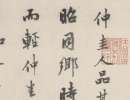 仲圭人品甚
昭同鄉時
而輕仲圭